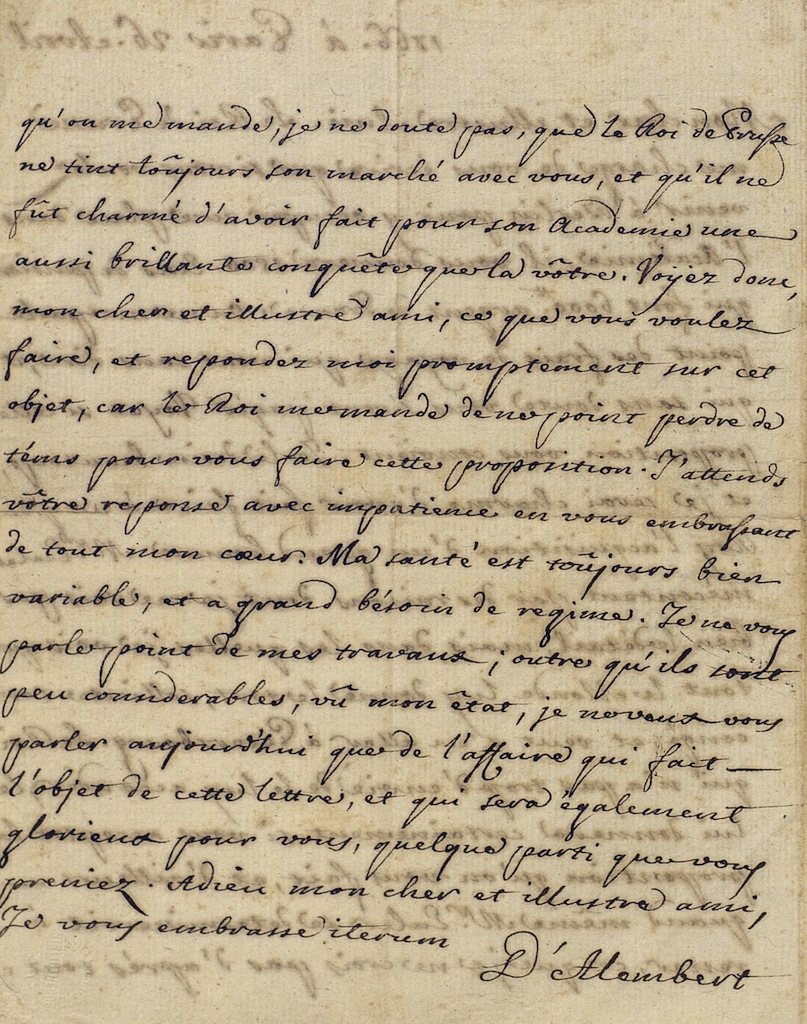 qu'on me mande, je ne doute pas, que le Roi de Prusse
ne tint toûjours son marché avec vous, et qu'il ne
fût charmé d'avoir fait pour son Academie une
aussi brillante conquête que la vôtre. Voyez donc,
mon cher et illustre ami, ce que vous voulez
faire, et repondez moi promptement sur cet
objet, car le Roi me mande de ne point perdre de
téms pour vous faire cette proposition. J'attends
vôtre reponse avec impatience en vous embrassant
de tout mon cœur. Ma santé est toûjours bien
variable, et a grand bésoin de regime. Je ne vous
parle point de mes travaux ; outre qu'ils sont
peu considerables, vû mon êtat, je ne veux vous
parler aujourd'hui que de l'affaire qui fait
l'objet de cette lettre, et qui sera également
glorieux pour vous, quelque parti que vous
preniez. Adieu mon cher et illustre ami,
Je vous embrasse iterum
D'Alembert